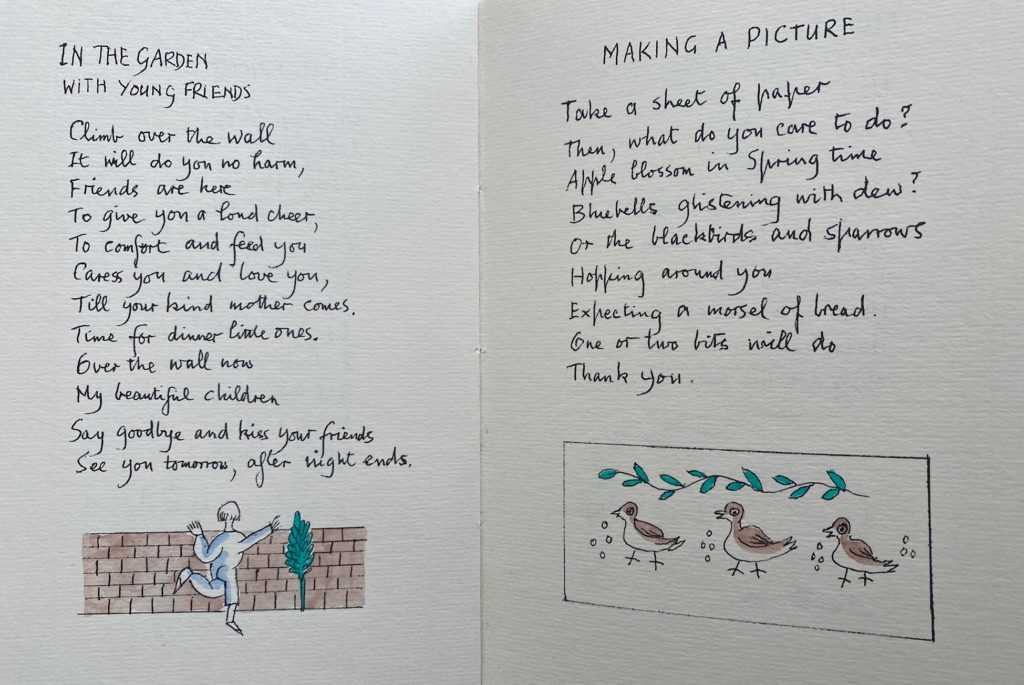 IN THE GARDEN
WITH YOUNG FRIENDS
Climb over the wall
It will do you no harm,
Friends are here
To give you a loud cheer,
To comfort and feed you
Caress you and love you,
Till your kind mother comes.
Time for dinner little ones.
Over the wall now
My beautiful children
Say goodbye and kiss your friends
See you tomorrow, after night ends.
MAKING A PICTURE
Take a sheet of paper
Then, what do you care to do?
Apple blossom in Spring time
Bluebells glistening with dew?
Or the blackbirds and sparrows
Hopping around you
Expecting a morsel of bread.
One or two bits will do
Thank you.